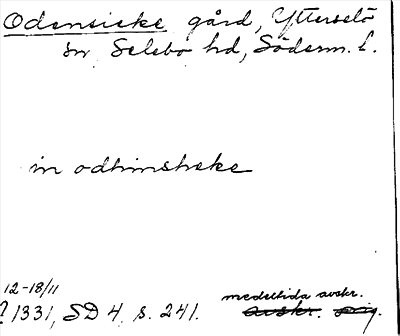 Odensicke gård, Ytterselö
sn Selebo hd, Söderm. l.
in odhinsheke
12-18/11
? 1331, SD 4, s. 241.
medeltida avskr.
avskr. orig.